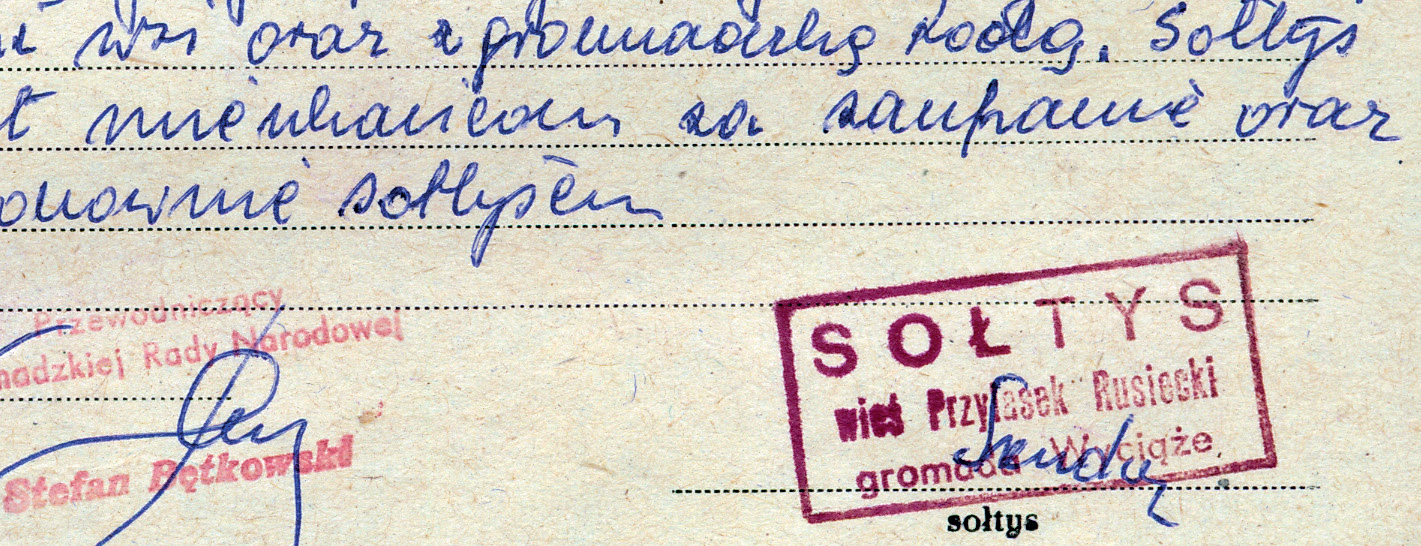 wsi oraz z gromadzką radą. Sołtys
mieszkańcom za zaufanie oraz
ponownie sołtysem
Przewodniczący
madzkiej Rady Narodowej
Stefan Pętkowski
SOŁTYS
wieś Przylasek Rusiecki
gromada Wyciąże
sołtys